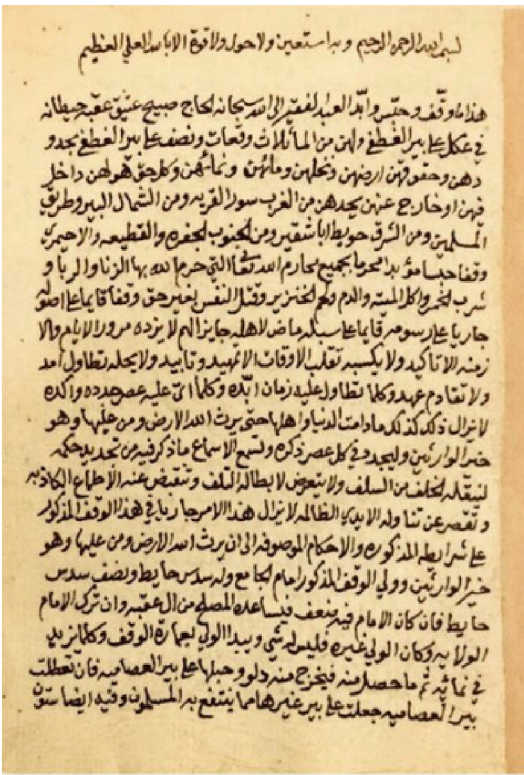 لبسم الله الرحمن الرحيم وبه استعين ولا حول ولا قوة الا بالله العلي العظيم
هذا ما وقف وحبس وابد العبد الفقير الى الله سبحانه الحاج صبيح عتيق عقبه حيطانه
في عكل على بير الغطغط ولهن من الماء ثلاث وقعات ونصف على بير الغطغط بحدو
دهن وحقوقهن ارضهن ونخلهن ومائهن ونمائهن وكل حق هو لهن داخل
فيهن او خارج عنهن يحدهن من الغرب سور القريه ومن الشمال البير وطريق
المسلمين ومن الشرق حويط ابا شقير ومن الجنوب الجفره والقطيعه والاحيمري
وقفا حبسا مؤبدا محرما بجميع محارم الله تعالى التي حرم الله بها الزنا والربا و
شرب الخمر واكل الميته والدم ولحم الخنزير وقتل النفس بغير حق وقفا قايما على اصوله
جاريا على رسومه قايما على سبله ماض لاهله جايزا لهم لا يزده مرور الايام والا
زمنه الا تاكيد ولا يكسبه تقلب الاوقات الا تمهيد وتابيد ولا يحله تطاول امد
ولا تقادم عهد وكلما تطاول عليه زمان ابده وكلما اتى عليه عصر جدده واكده
لا يزال ذلك كذلك ما دامت الدنيا واهلها حتى يرث الله الارض ومن عليها وهو
خير الوارثين وليجدد في كل عصر ذكره ولتسمع الاسماع ما ذكر فيه من تحديد حكمه
لينقله الخلف من السلف ولا يتعرض لابطاله التلف وتنقبض عنه الاطماع الكاذبه
وتقصر عن تناوله الايدي الظالمه لا يزال هذا الامر جاريا في هذا الوقف المذكور
على شرايطه المذكوره والاحكام الموصوفه الى ان يرث الله الارض ومن عليها وهو
خير الوارثين وولي الوقف المذكور امام الجامع وله سدس حايط ونصف سدس
حايط فان كان الامام فيه ضعف فيساعده المصلح من ال عقبه وان ترك الامام
الولايه وكان الولي غيره فليس له شي ويبدا الولي بعمارة الوقف وكلما يزيد
في نمائه ثم ما حصل منه فيخرج منه دلو وحبلها على بير العصاميه فان تعطلت
بير العصاميه جعلت على بير غيرها مما ينتفع به المسلمون وفيه ايضا ستون